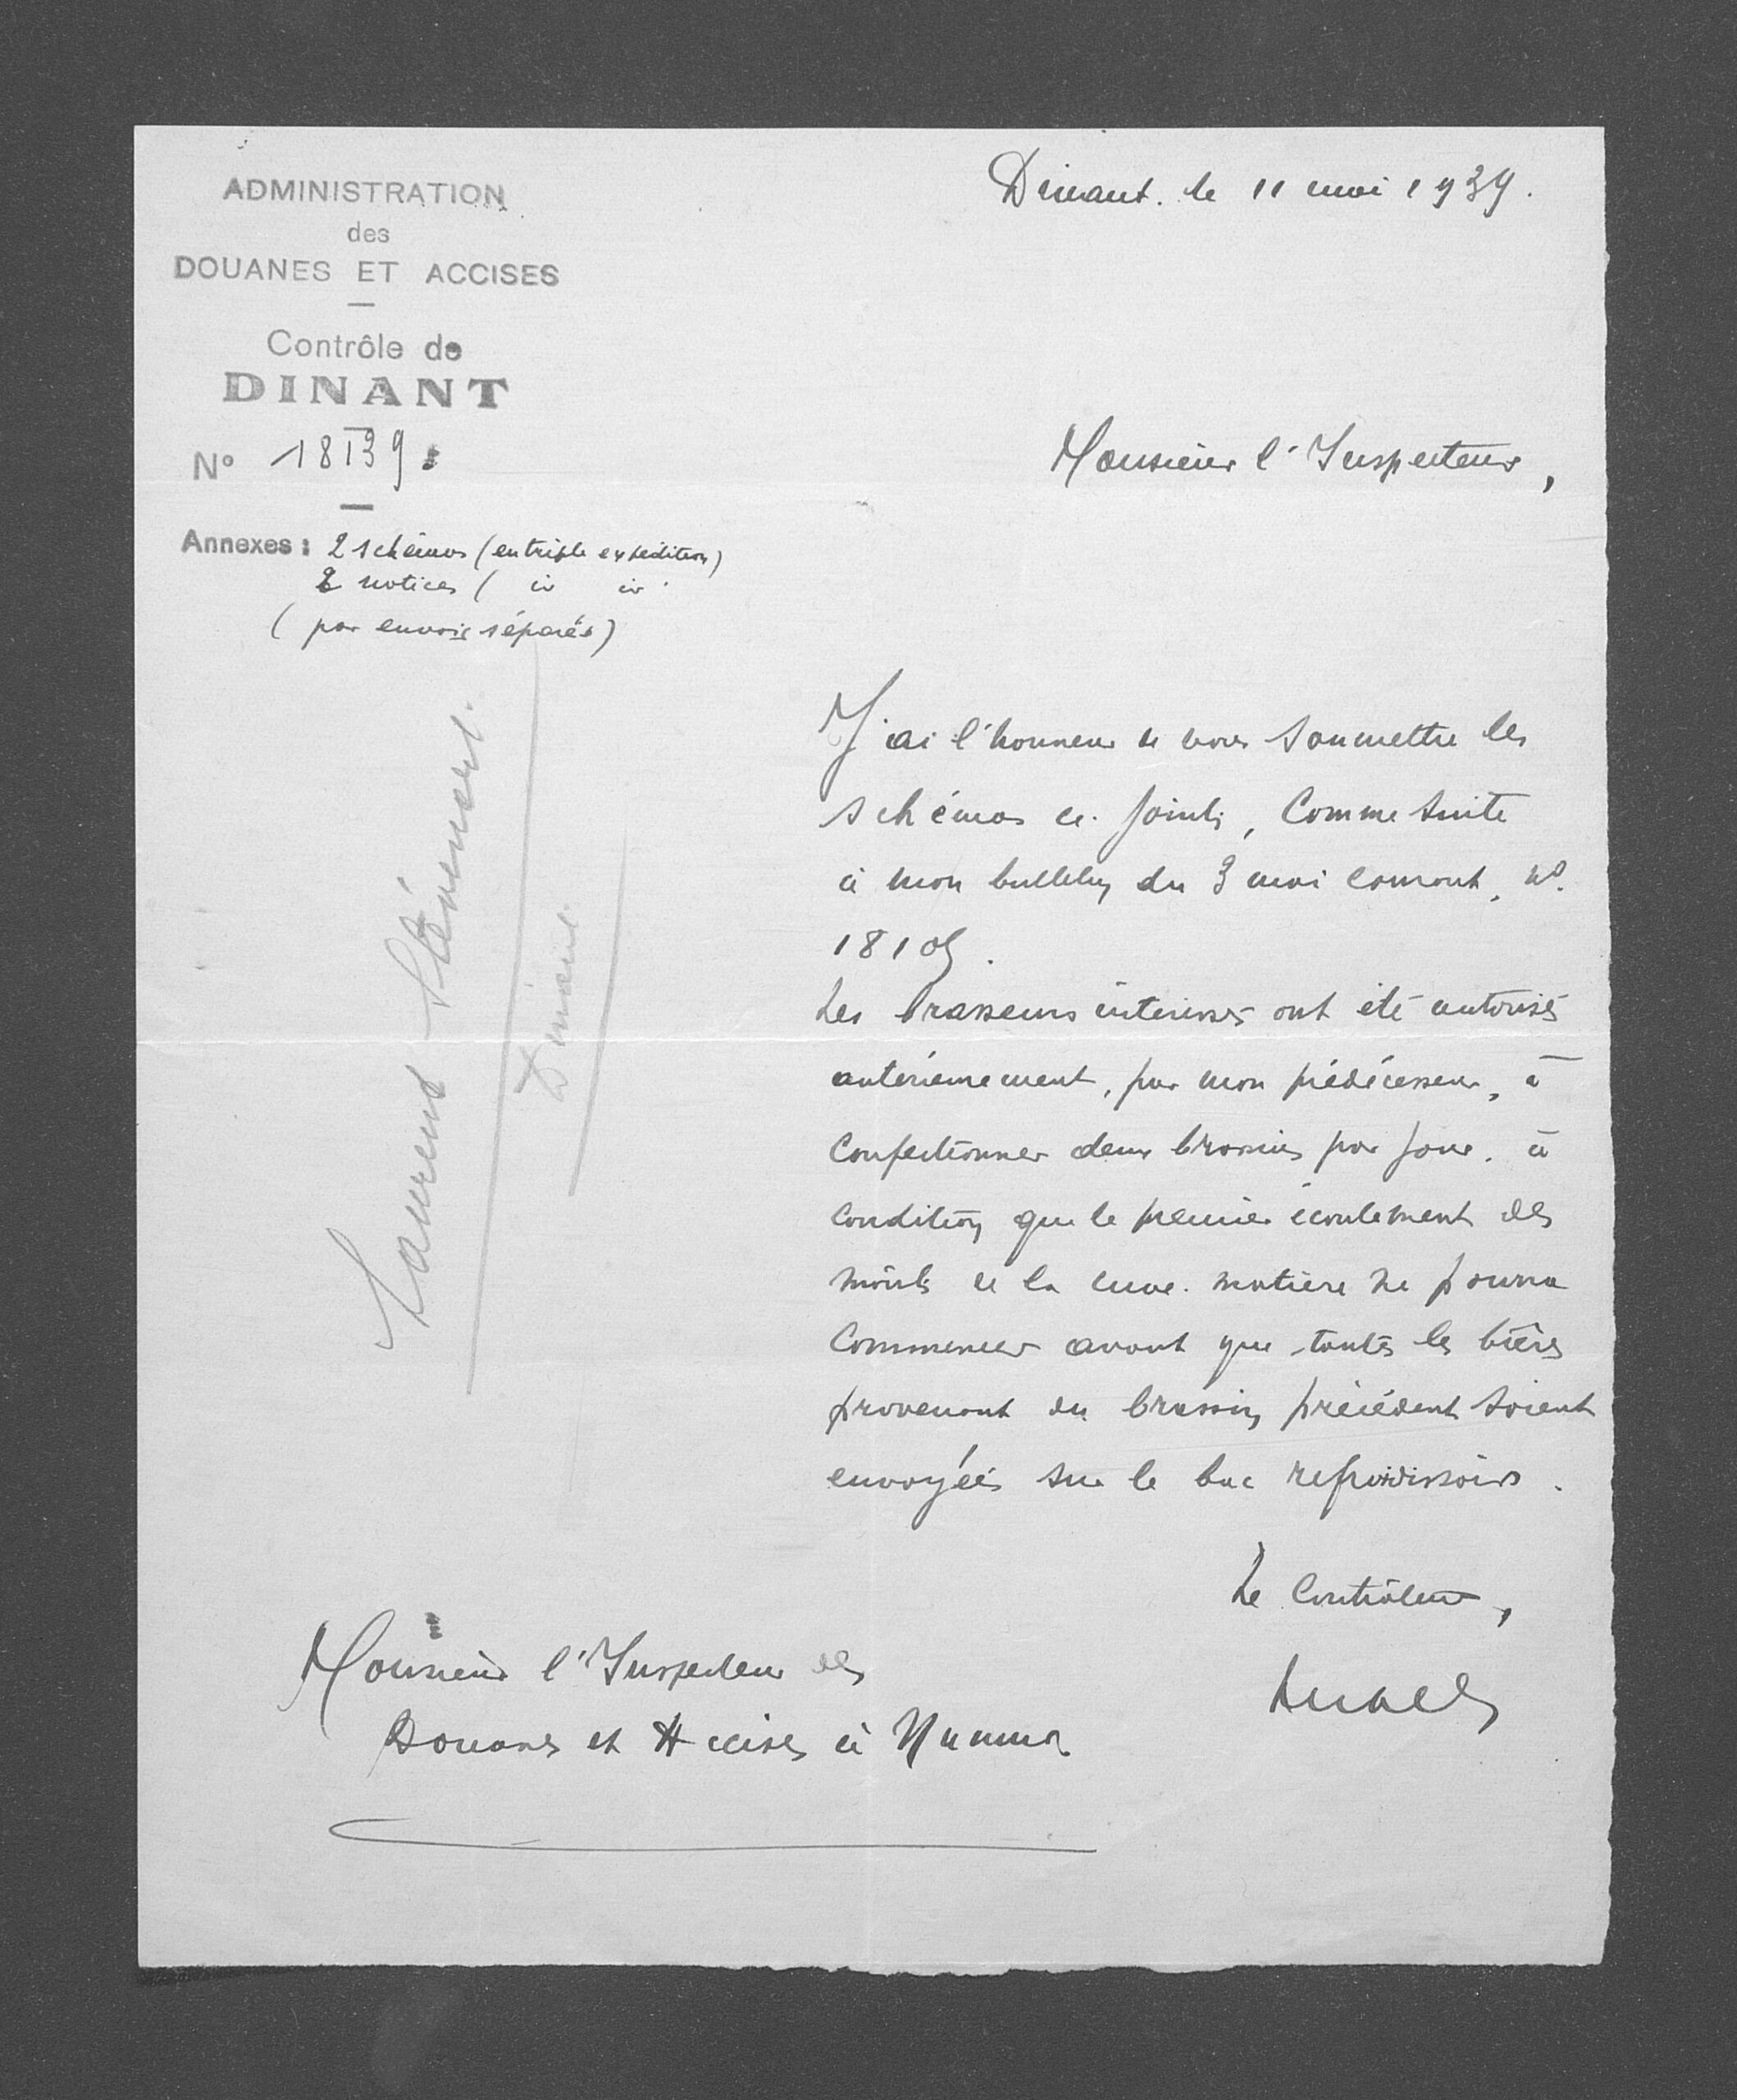 ADMINISTRATION
des
DOUANES ET ACCISES
Contrôle de
DINANT
N° 18139
Annexes : 2 schémas (en triple expédition)
2 notices ( id id
( par envois séparés)
Dinant. le 11 mai 1939.
Monsieur l'Inspecteur,
J'ai l'honneur de vous soumettre les
schémas ci-joints, comme suite
à mon bulletin du 3 mai courant, n°
18105.
Les brasseurs intéressés ont été autorisés
antérieurement, par mon prédécesseur, à
confectionner deux brassins par jour, à
condition que le premier écoulement des
moûts de la cuve-matière ne pourra
commencer avant que toutes les bières
provenant du brassin précédent soient
envoyées sur le bac refroidissoir.
Le Contrôleur,
Monsieur l'Inspecteur des
Douanes et Accises à Namur
Laurent
Dinant.